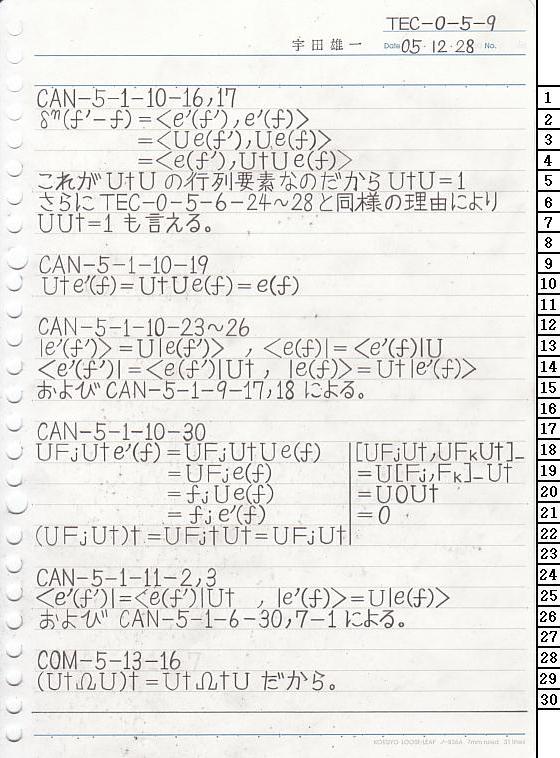 TEC-0-5-9
宇田雄一 Date 05・12・28 No.
CAN-5-1-10-16,17
δⁿ(f'-f)=<e'(f'),e'(f)>
=<Ue(f'),Ue(f)>
=<e(f'),U†Ue(f)>
これがU†Uの行列要素なのだからU†U=1
さらにTEC-0-5-6-24〜28と同様の理由により
UU†=1も言える。
CAN-5-1-10-19
U†e'(f)=U†Ue(f)=e(f)
CAN-5-1-10-23〜26
|e'(f')>=U|e(f')> , <e(f)|=<e'(f)|U
<e'(f')|=<e(f')|U† , |e(f)>=U†|e'(f)>
およびCAN-5-1-9-17,18による。
CAN-5-1-10-30
UFjU†e'(f)=UFjU†Ue(f) [UFjU†,UFkU†]-
=UFje(f) =U[Fj,Fk]-U†
=fjUe(f) =U0U†
=fje'(f) =0
(UFjU†)†=UFj†U†=UFjU†
CAN-5-1-11-2,3
<e'(f')|=<e(f')|U† , |e'(f)>=U|e(f)>
およびCAN-5-1-6-30,7-1による。
COM-5-13-16
(U†ΩU)†=U†Ω†Uだから。
KOKUYO LOOSE-LEAF ノ-836A 7mm ruled 31 lines
1
2
3
4
5
6
7
8
9
10
11
12
13
14
15
16
17
18
19
20
21
22
23
24
25
26
27
28
29
30